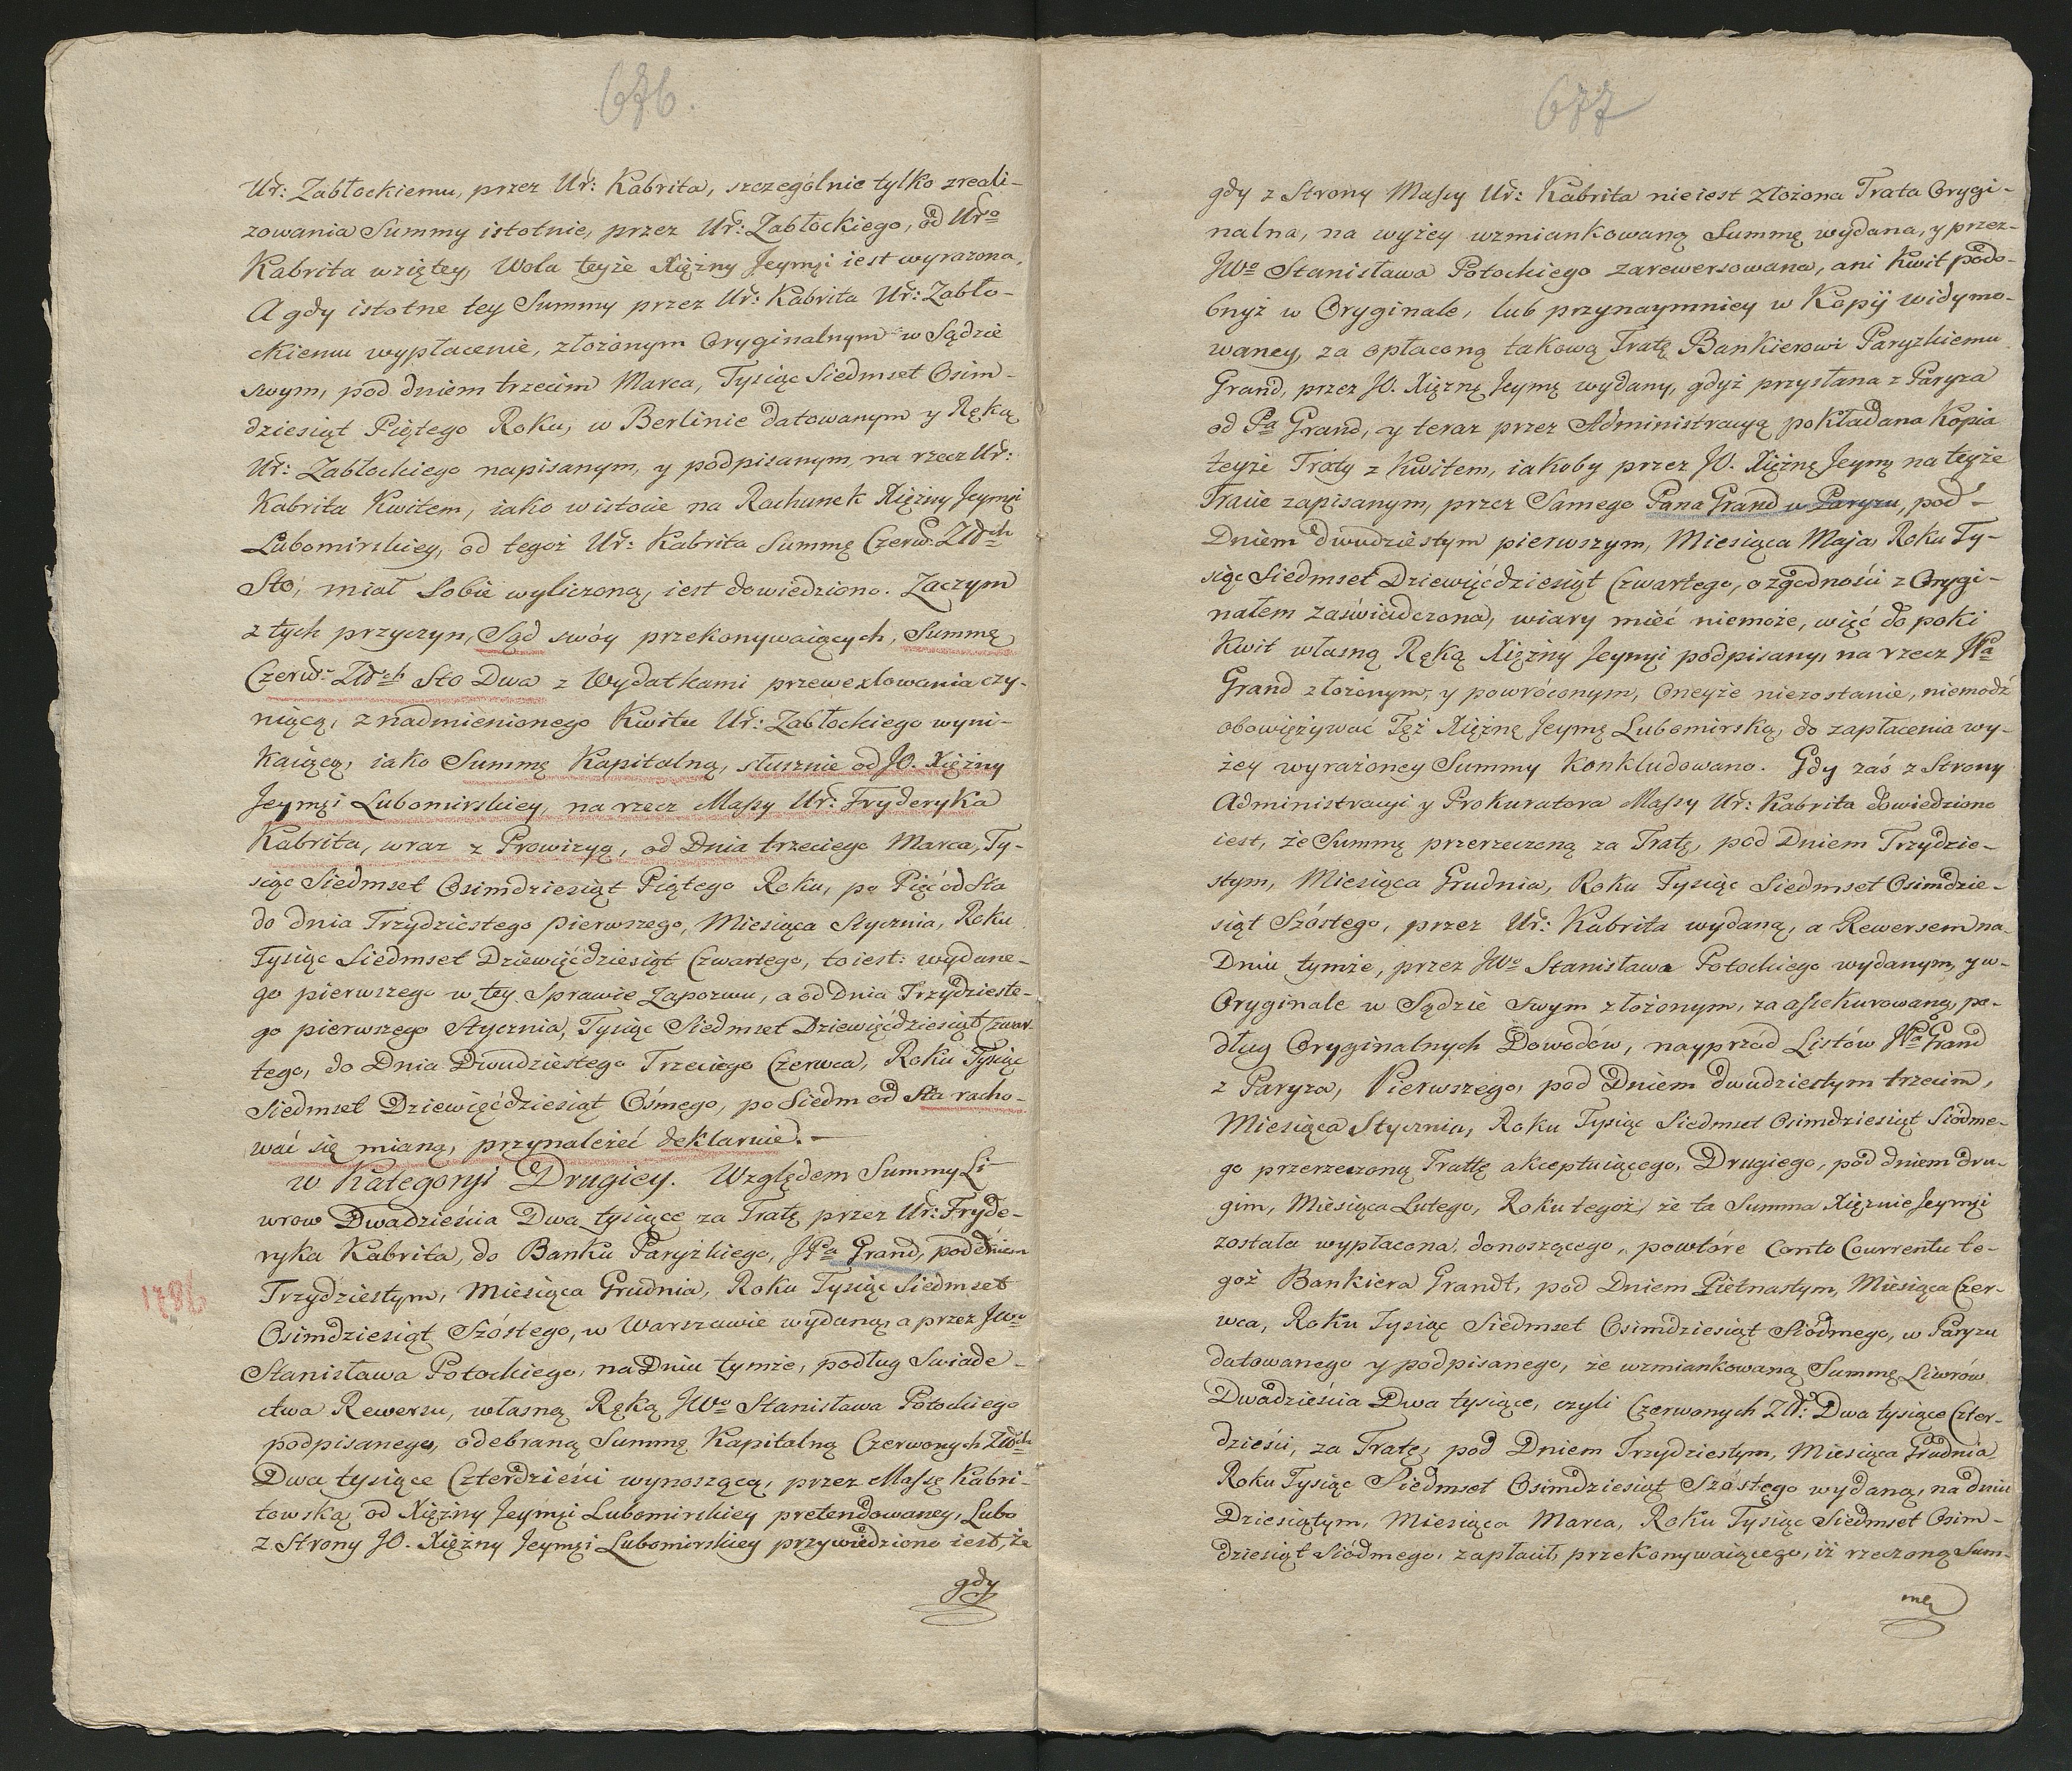 676.
Ur: Zabłockiemu, przez Ur: Kabrita, szczególnie tylko zreali-
zowania Summy istotnie, przez Ur: Zabłockiego, od Uro
Kabrita wziętey, Wola teyże Xiężny Jeymći iest wyrażona,
A gdy istotne tey Summy przez Ur: Kabrita Ur: Zabło-
ckiemu wypłacenie, złożonym Oryginalnym w Sądzie
swym, pod dniem trzecim Marca, Tysiąc Siedmset Osim-
dziesiąt Piątego Roku, w Berlinie datowanym y Ręką
Ur: Zabłockiego napisanym, y podpisanym, na rzecz Ur:
Kabrita Kwitem, iako w istocie na Rachunek Xiężny Jeymći
Lubomirskiey, od tegoż Ur: Kabrita Summę Czerw: Złłch
Sto, miał Sobie wyliczoną, iest dowiedziono. Zaczym
z tych przyczyn, Sąd swóy przekonywaiących, Summę
Czerw: Złłch Sto Dwa z Wydatkami przewexlowania czy-
niącą, z nadmienionego Kwitu Ur: Zabłockiego wyni-
kaiącą, iako Summę Kapitalną, słusznie od JO. Xiężny
Jeymći Lubomirskiey, na rzecz Massy Ur: Fryderyka
Kabrita, wraz z Prowizyą, od Dnia trzeciego Marca, Ty-
siąc Siedmset Osimdziesiąt Piątego Roku, po Pięć od Sta
do dnia Trzydziestego pierwszego, Miesiąca Stycznia, Roku
Tysiąc Siedmset Dziewięćdziesiąt Czwartego, to iest: wydane-
go pierwszego w tey Sprawie Zapozwu, a od Dnia Trzydzieste-
go pierwszego Stycznia, Tysiąc Siedmset Dziewięćdziesiąt Czwar-
tego, do Dnia Dwudziestego Trzeciego Czerwca, Roku Tysiąc
Siedmset Dziewięćdziesiąt Ósmego, po Siedm od Sta racho-
wać się mianą, przynależeć deklaruie. -
w Kategoryi Drugiey. Względem Summy Li-
wrow Dwadzieścia Dwa tysiące za Tratę przez Ur: Fryde-
ryka Kabrita, do Banku Paryzkiego, JPa Grand, pod dniem
1786
Trzydziestym, Miesiąca Grudnia, Roku Tysiąc Siedmset
Osimdziesiąt Szóstego, w Warszawie wydaną, a przez JWo
Stanisława Potockiego, na Dniu tymże, podług Świade-
ctwa Rewersu, własną Ręką JWo Stanisława Potockiego
podpisanego, odebraną Summę Kapitalną Czerwonych Złłch
Dwa tysiące Czterdzieści wynoszącą, przez Massę Kabri-
towską od Xiężny Jeymći Lubomirskiey pretendowaney, Lubo
z Strony JO. Xiężny Jeymći Lubomirskiey przywiedziono iest, że
gdy
677
gdy z Strony Massy Ur: Kabrita nie iest złożona Trata Orygi-
nalna, na wyżey wzmiankowaną Summę wydana, y przez-
JWo Stanisława Potockiego zarewersowana, ani Kwit podo-
bnyż w Oryginale, lub przynaymniey w Kopij widymo-
waney, za opłaconą takową Tratę Bankierowi Paryzkiemu
Grand, przez JO. Xiężnę Jeymę wydany, gdyż przysłana z Paryża
od Pa Grand, y teraz przez Administracyą pokładana Kopia
teyże Traty z Kwitem, iakoby przez JO. Xiężnę Jeymę na teyże
Tracie zapisanym, przez Samego Pana Grand w Paryzu, pod -
Dniem dwudziestym pierwszym, Miesiąca Maja, Roku Ty-
siąc Siedmset Dziewięćdziesiąt Czwartego, o zgodności z Orygi-
nałem zaświadczona, wiary mieć nie może, więć do poki
Kwit własną Ręką Xiężny Jeymći podpisany, na rzecz JPa
Grand złożonym, y powróconym, Oneyże niezostanie, niemodź
obowiązywać Też Xiężnę Jeymę Lubomirską, do zapłacenia wy-
żey wyrażoney Summy Konkludowano. Gdy zaś z Strony
Administracyi y Prokuratora Massy Ur: Kabrita dowiedziono
iest, że Summę przerzeczoną za Tratę, pod Dniem Trzydzie-
stym, Miesiąca Grudnia, Roku Tysiąc Siedmset Osimdzie-
siąt Szóstego, przez Ur: Kabrita wydaną, a Rewersem na
Dniu tymże, przez JWo Stanisława Potockiego wydanym, y w-
Oryginale w Sądzie Swym złożonym, za assekurowaną, po-
dług Oryginalnych Dowodów, nayprzód Listów JPa Grand
z Paryża, Pierwszego, pod Dniem dwudziestym trzecim,
Miesiąca Stycznia, Roku Tysiąc Siedmset Osimdziesiąt Siódme-
go przerzeczoną Trattę akceptuiącego, Drugiego, pod dniem dru-
gim, Miesiąca Lutego, Roku tegoż, że ta Summa Xiężnie Jeymći
została wypłacona, donoszącego, powtóre Conto Courrentu te-
goż Bankiera Grandt, pod Dniem Piętnastym, Miesiąca Czer-
wca, Roku Tysiąc Siedmset Osimdziesiąt Siódmego, w Paryzu
datowanego y podpisanego, że wzmiankowaną Summę Liwrów
Dwadzieścia Dwa tysiące, czyli Czerwonych Złł: Dwa tysiące Czter-
dzieści, za Tratę, pod Dniem Trzydziestym, Miesiąca Grudnia
Roku Tysiąc Siedmset Osimdziesiąt Szóstego wydaną, na dniu
Dziesiątym, Miesiąca Marca, Roku Tysiąc Siedmset Osim-
dziesiąt Siódmego, zapłacił, przekonywaiącego, iż rzeczoną Sum-
mę